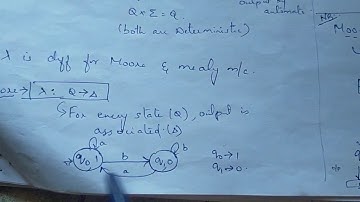 Q × Σ = Q.
output of
automata
(both are Deterministic)
λ is diff for Moore & mealy m/c.
λ: Q → Δ
For every state (Q), output is
associated (Δ)
a
b
q0, 1
b
q1, 0
a
q0 → 1
q1 → 0
Moo